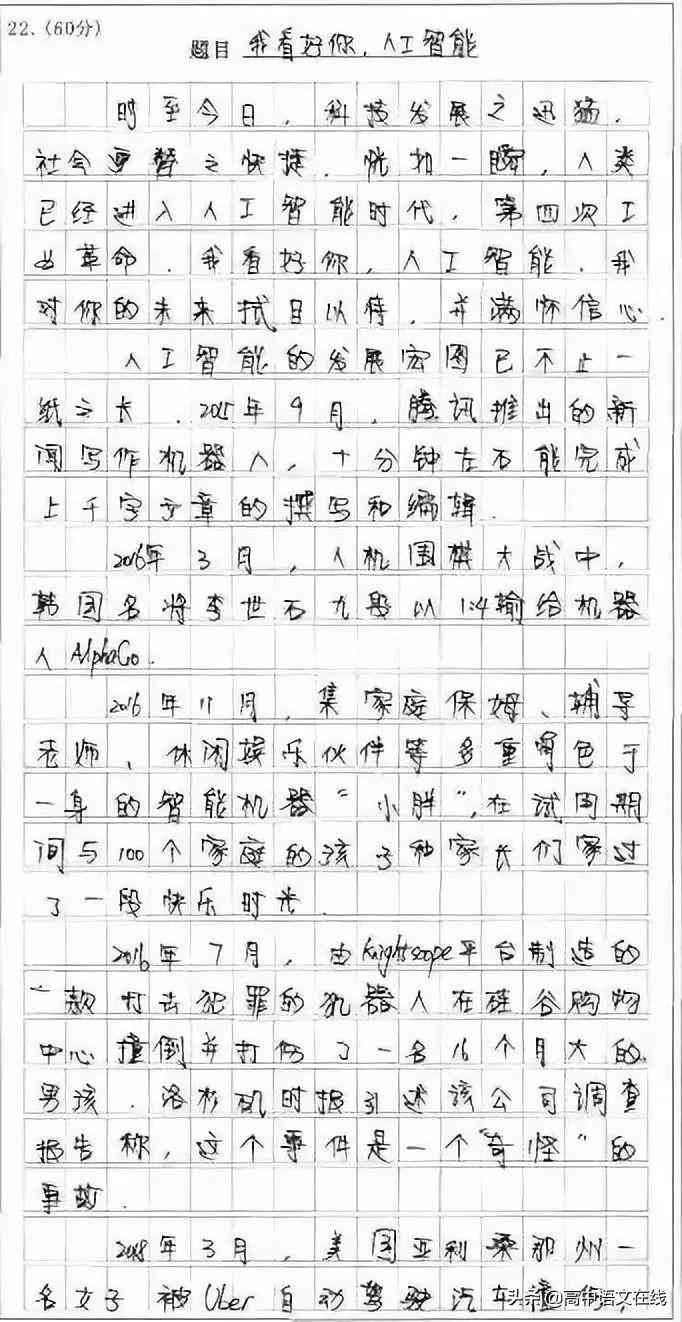 22.(60分)
题目 我看好你,人工智能
时至今日,科技发展之迅猛,
社会更替之快捷,恍扣一瞬,人类
已经进入人工智能时代,第四次工
业革命.我看好你,人工智能.我
对你的未来拭目以待,并满怀信心.
人工智能的发展宏图已不止一
纸之长.2015年9月,腾讯推出的新
闻写作机器人,十分钟左右能完成
上千字文章的撰写和编辑.
2016年3月,人机围棋大战中,
韩国名将李世石九段以1:4输给机器
人AlphaGo.
2016年11月,集家庭保姆、辅导
老师、休闲娱乐伙件等多重角色于
一身的智能机器“小胖”,在试用期
间与100个家庭的孩子和家长们家过
了一段快乐时光.
2016年7月,由Knightscope平台制造的
一款打击犯罪的机器人在硅谷购物
中心撞倒并打伤了一名16个月大的
男孩.洛杉矶时报引述该公司调查
报告称,这个事件是一个“奇怪”的
事故.
2018年3月,美国亚利桑那州一
名女子被Uber自动驾驶汽车撞伤,
头条@高中语文在线